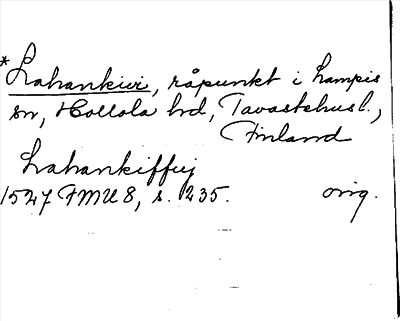 *Lahankivi, råpunkt i Lampis
sn, Hollola hd, Tavastehusl.,
Finland
Lahankiffuj
1547 FMU 8, s. 235. orig.